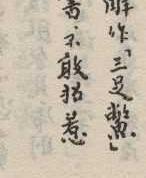 解作「三足鱉」
害不敢招惹